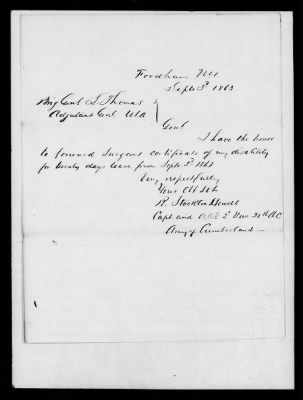 Fordham NY
Sept 3d 1863
Brig Genl L Thomas
Adjutant Genl USA
Genl
I have the honor
to forward Surgeons certificate of my disability
for twenty days leave from Sept 3d 1863
Very respectfully
Your Obt Svt
R. Stockton
Capt and 2d Div 20th AC
Army of Cumberland